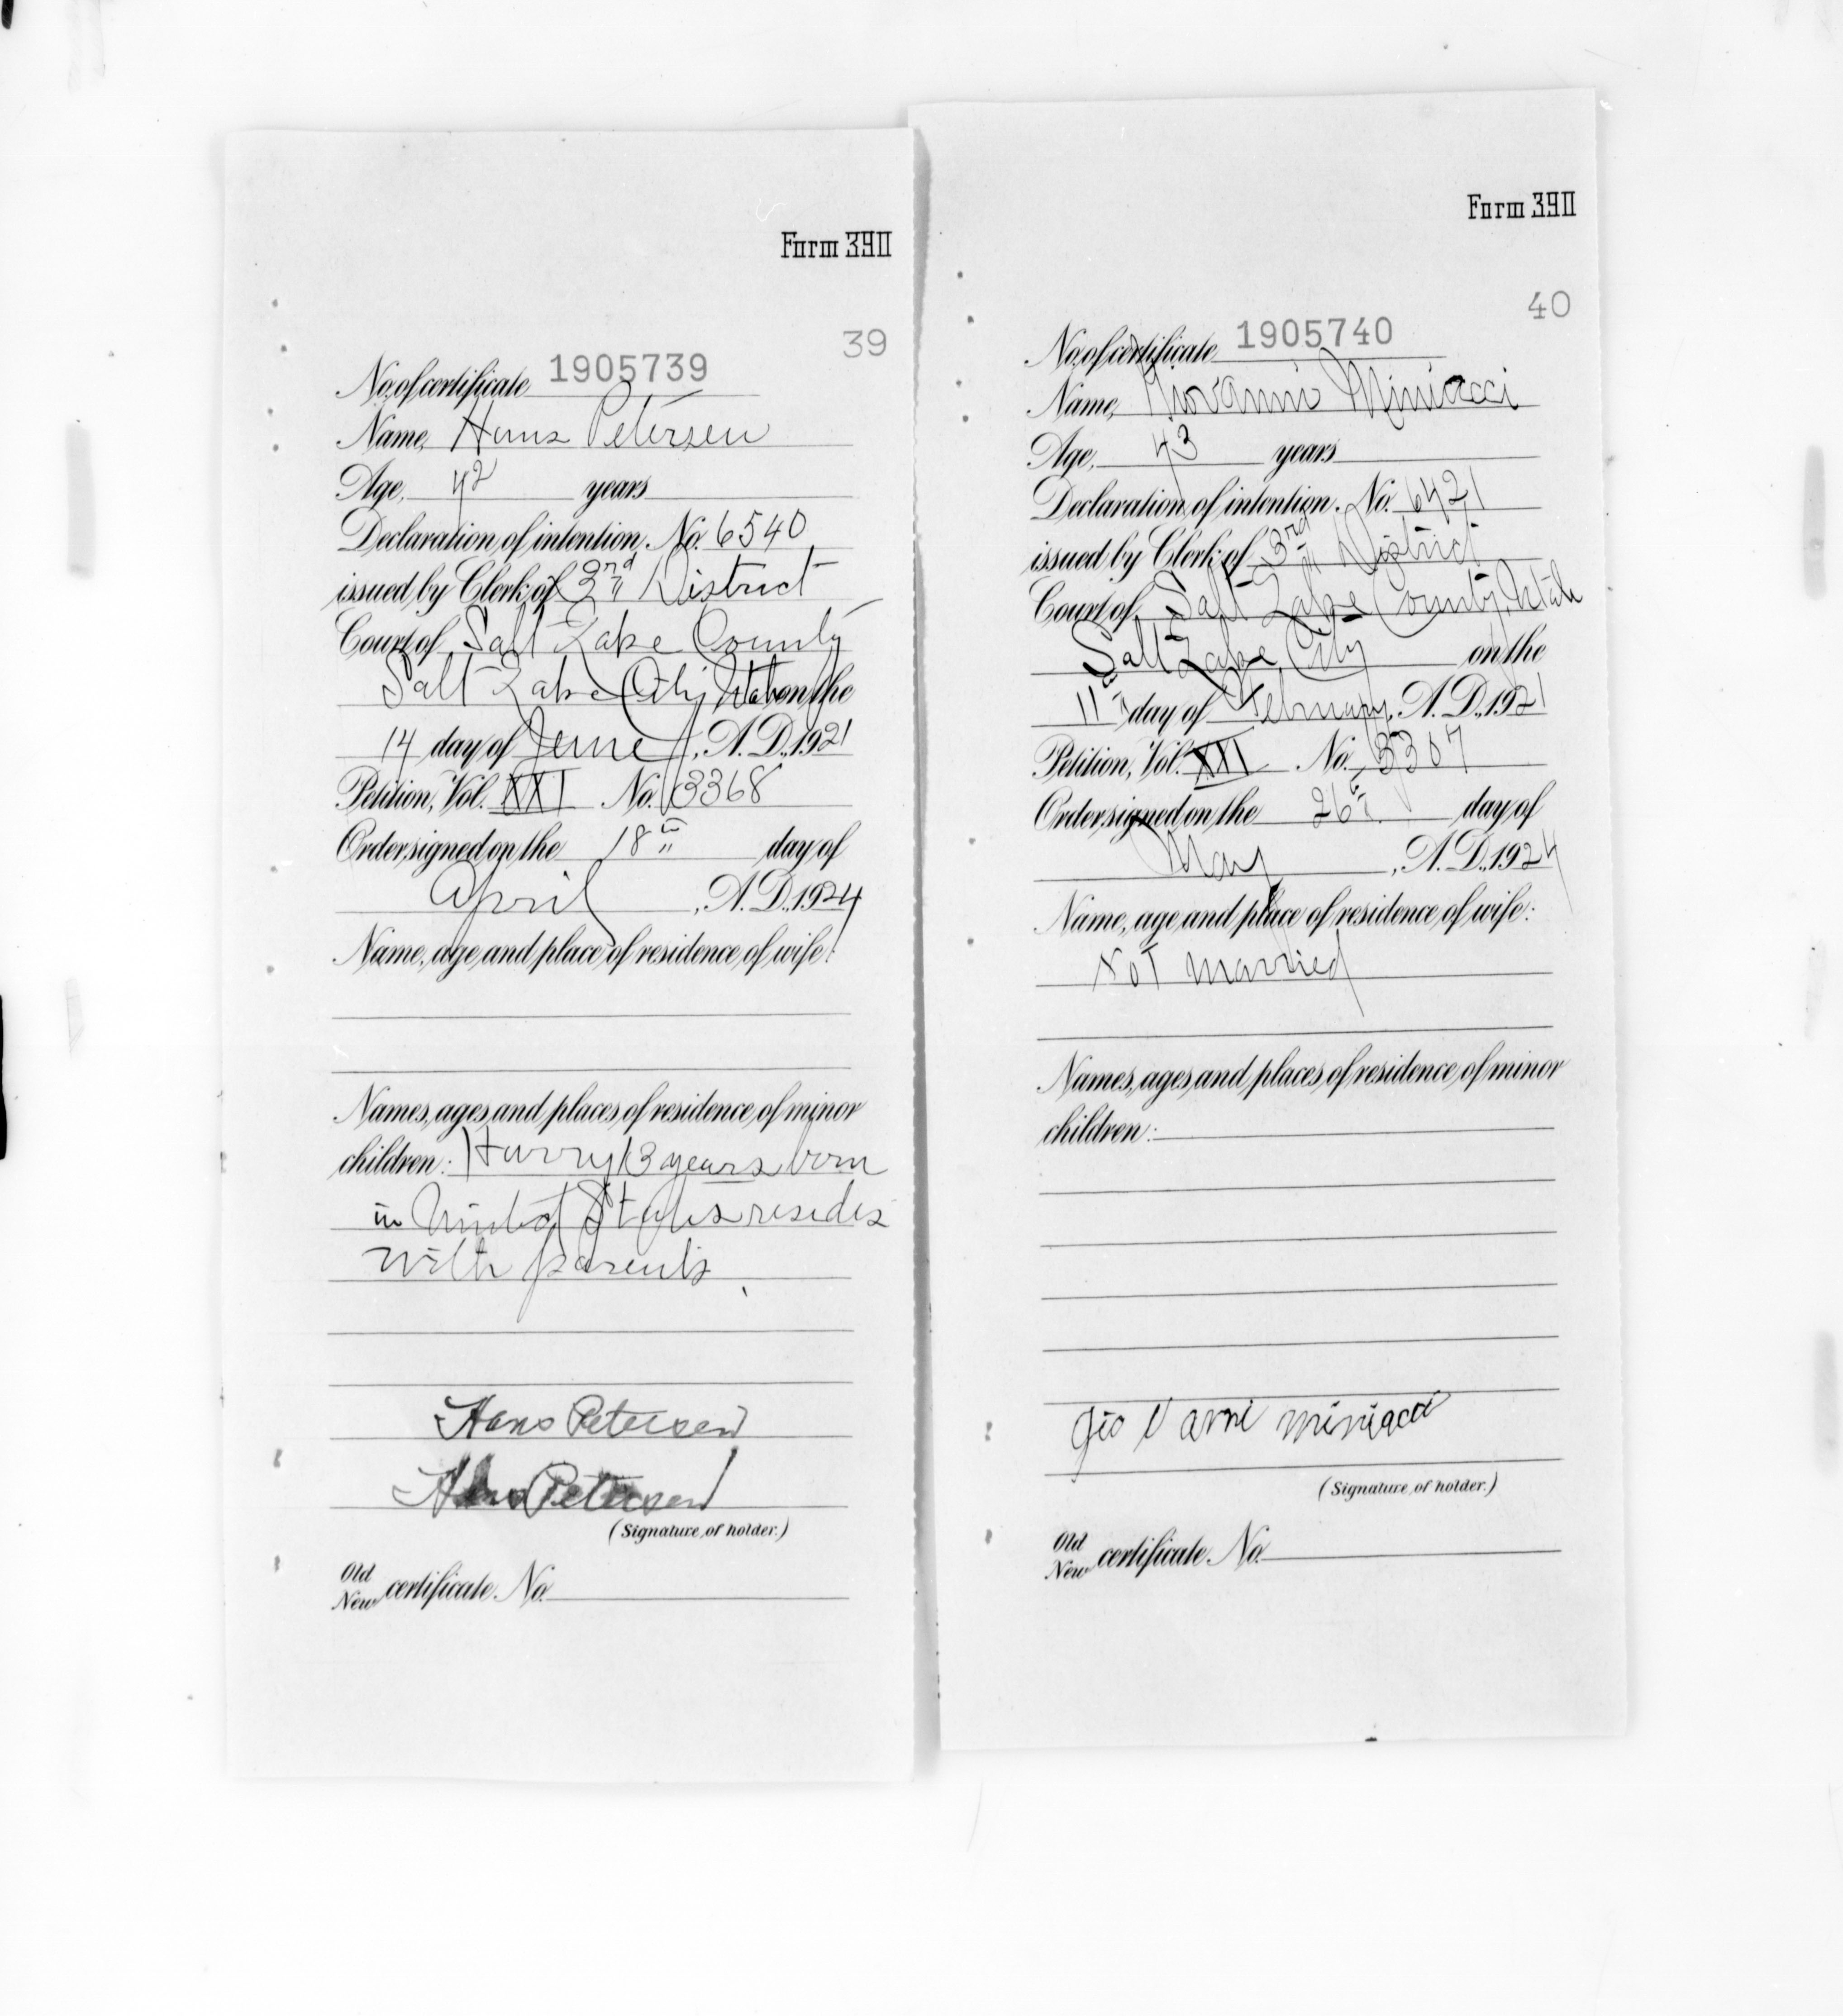 Form 390
39
No. of certificate 1905739
Name, Hans Petersen
Age, 42 years
Declaration of intention, No. 6540
issued by Clerk of 3rd District
Court of Salt Lake County
Salt Lake City Utah on the
14 day of June, A.D., 1921
Petition, Vol. XXI No. 3368
Order signed on the 18th day of
April, A.D., 1924
Name, age and place of residence of wife:
Names, ages and places of residence of minor
children: Harry 13 years born
in United States resides
with parents
Hans Petersen
Hans Petersen
(Signature of holder.)
Old
New certificate No.
Form 390
40
No. of certificate 1905740
Name, Giovanni Miniacci
Age, 43 years
Declaration of intention, No. 6421
issued by Clerk of 3rd District
Court of Salt Lake County, Utah
Salt Lake City on the
11th day of February, A.D., 1921
Petition, Vol. XXI No. 3367
Order signed on the 26th day of
May, A.D., 1924
Name, age and place of residence of wife:
Not married
Names, ages and places of residence of minor
children:
Giovanni Miniacci
(Signature of holder.)
Old
New certificate No.